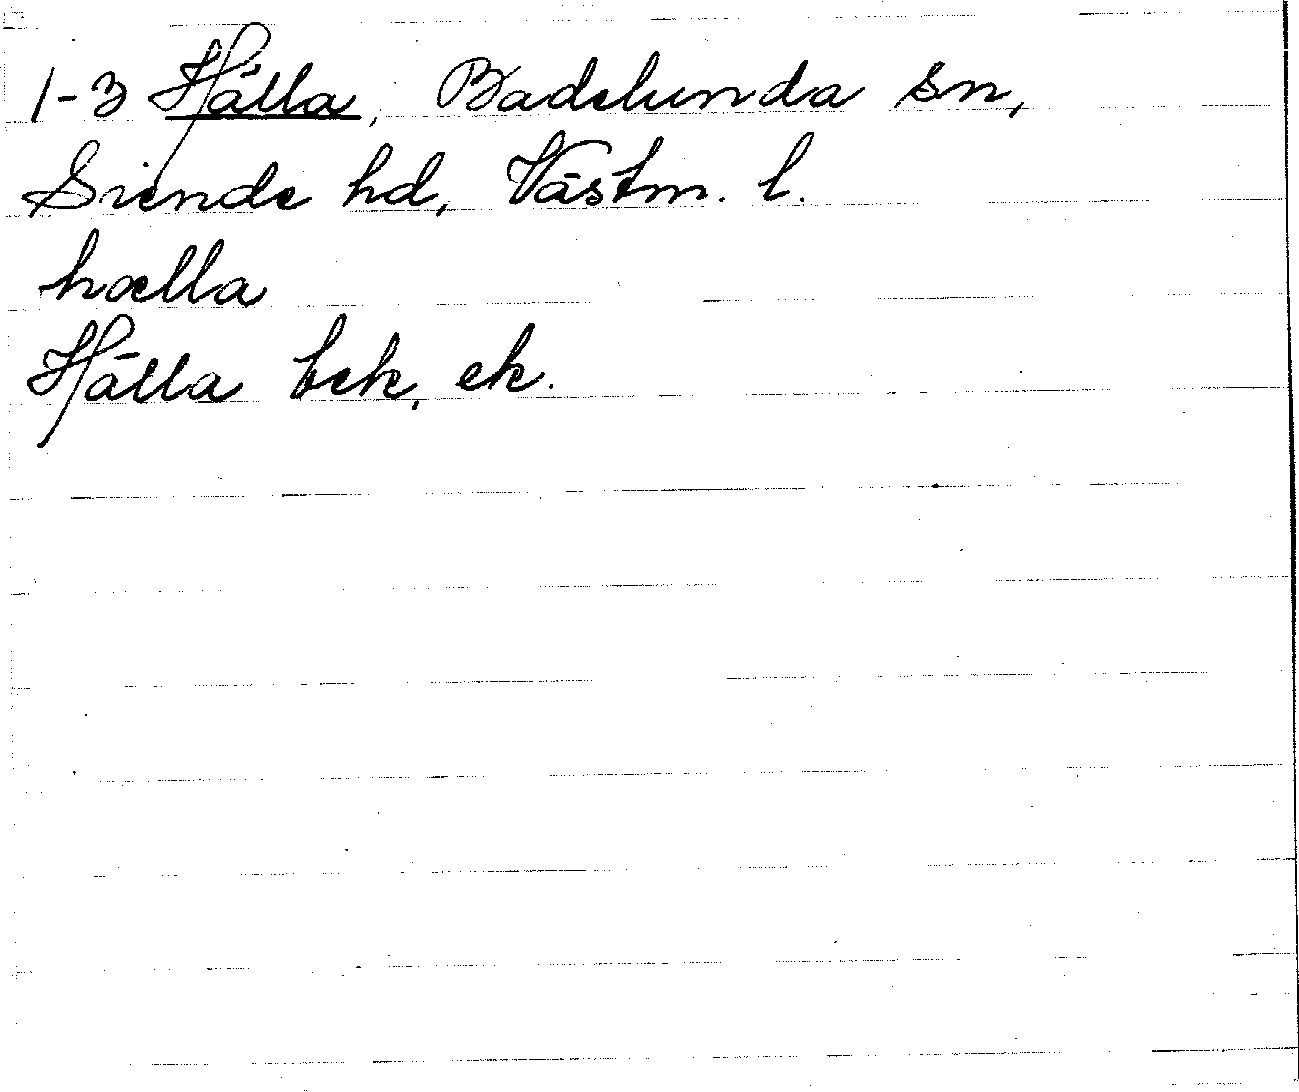 1-3 Hälla, Badelunda sn,
Siende hd, Västm. l.
hælla
Hälla bek, ek.